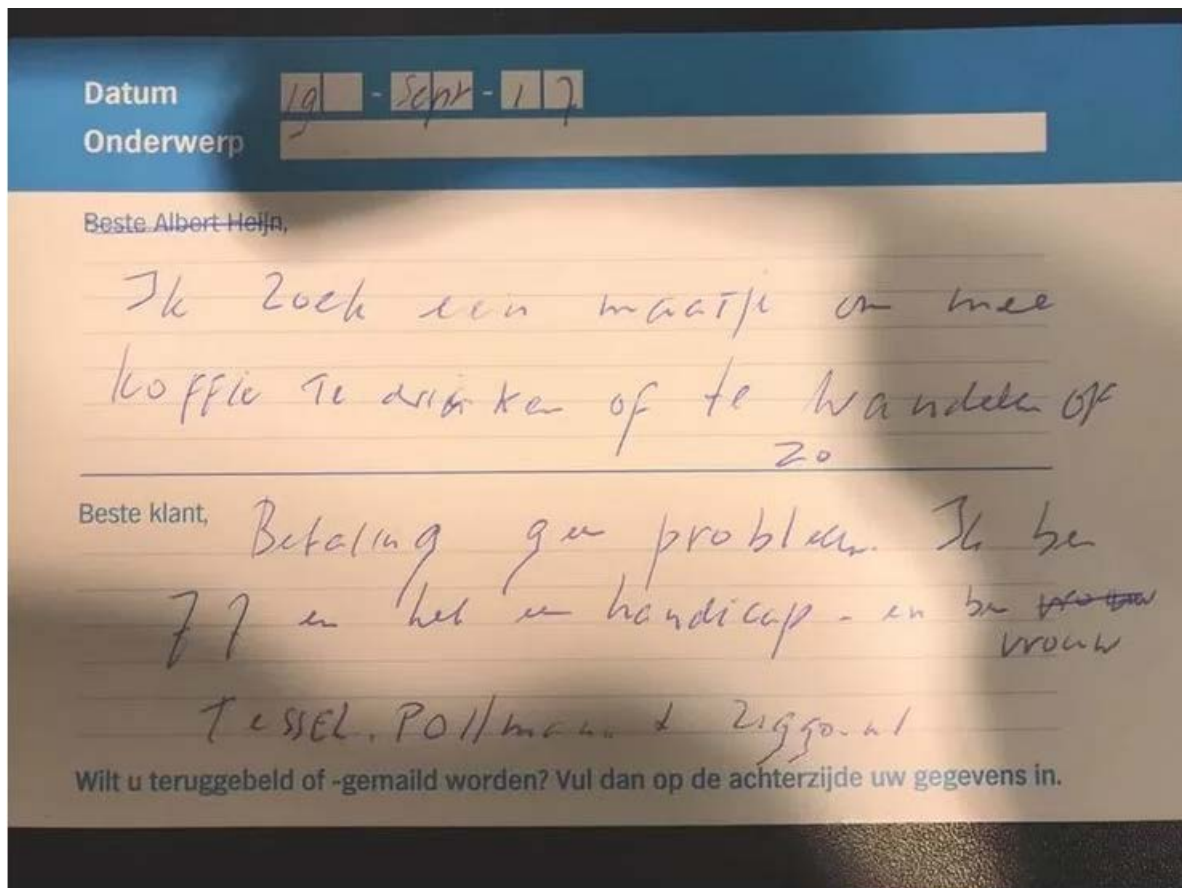 Datum 19 - Sept - 17
Onderwerp
Beste Albert Heijn,
Ik zoek een maatje om mee
koffie te drinken of te wandelen of
zo
Beste klant, Betaling geen probleem. Ik ben
77 en heb een handicap - en ben vrouw
vrouw
Tessel. Pollmann Ziggo.nl
Wilt u teruggebeld of -gemaild worden? Vul dan op de achterzijde uw gegevens in.